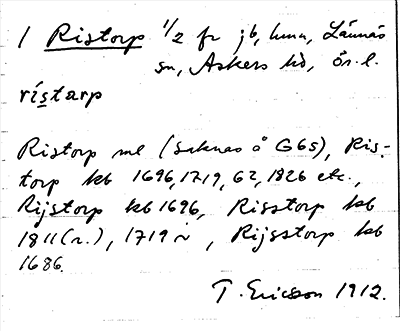 1 Ristorp 1/2 fr jb, hmn, Lännäs
sn, Askers hd, Ör. l.
rístarp
Ristorp ml (saknas å G65), Ris-
torp kb 1696, 1719, 62, 1826 etc.,
Rijstorp kb 1696, Risstorp kb
1811 (r.), 1719 , Rijsstorp kb
1686.
T. Ericsson 1912.